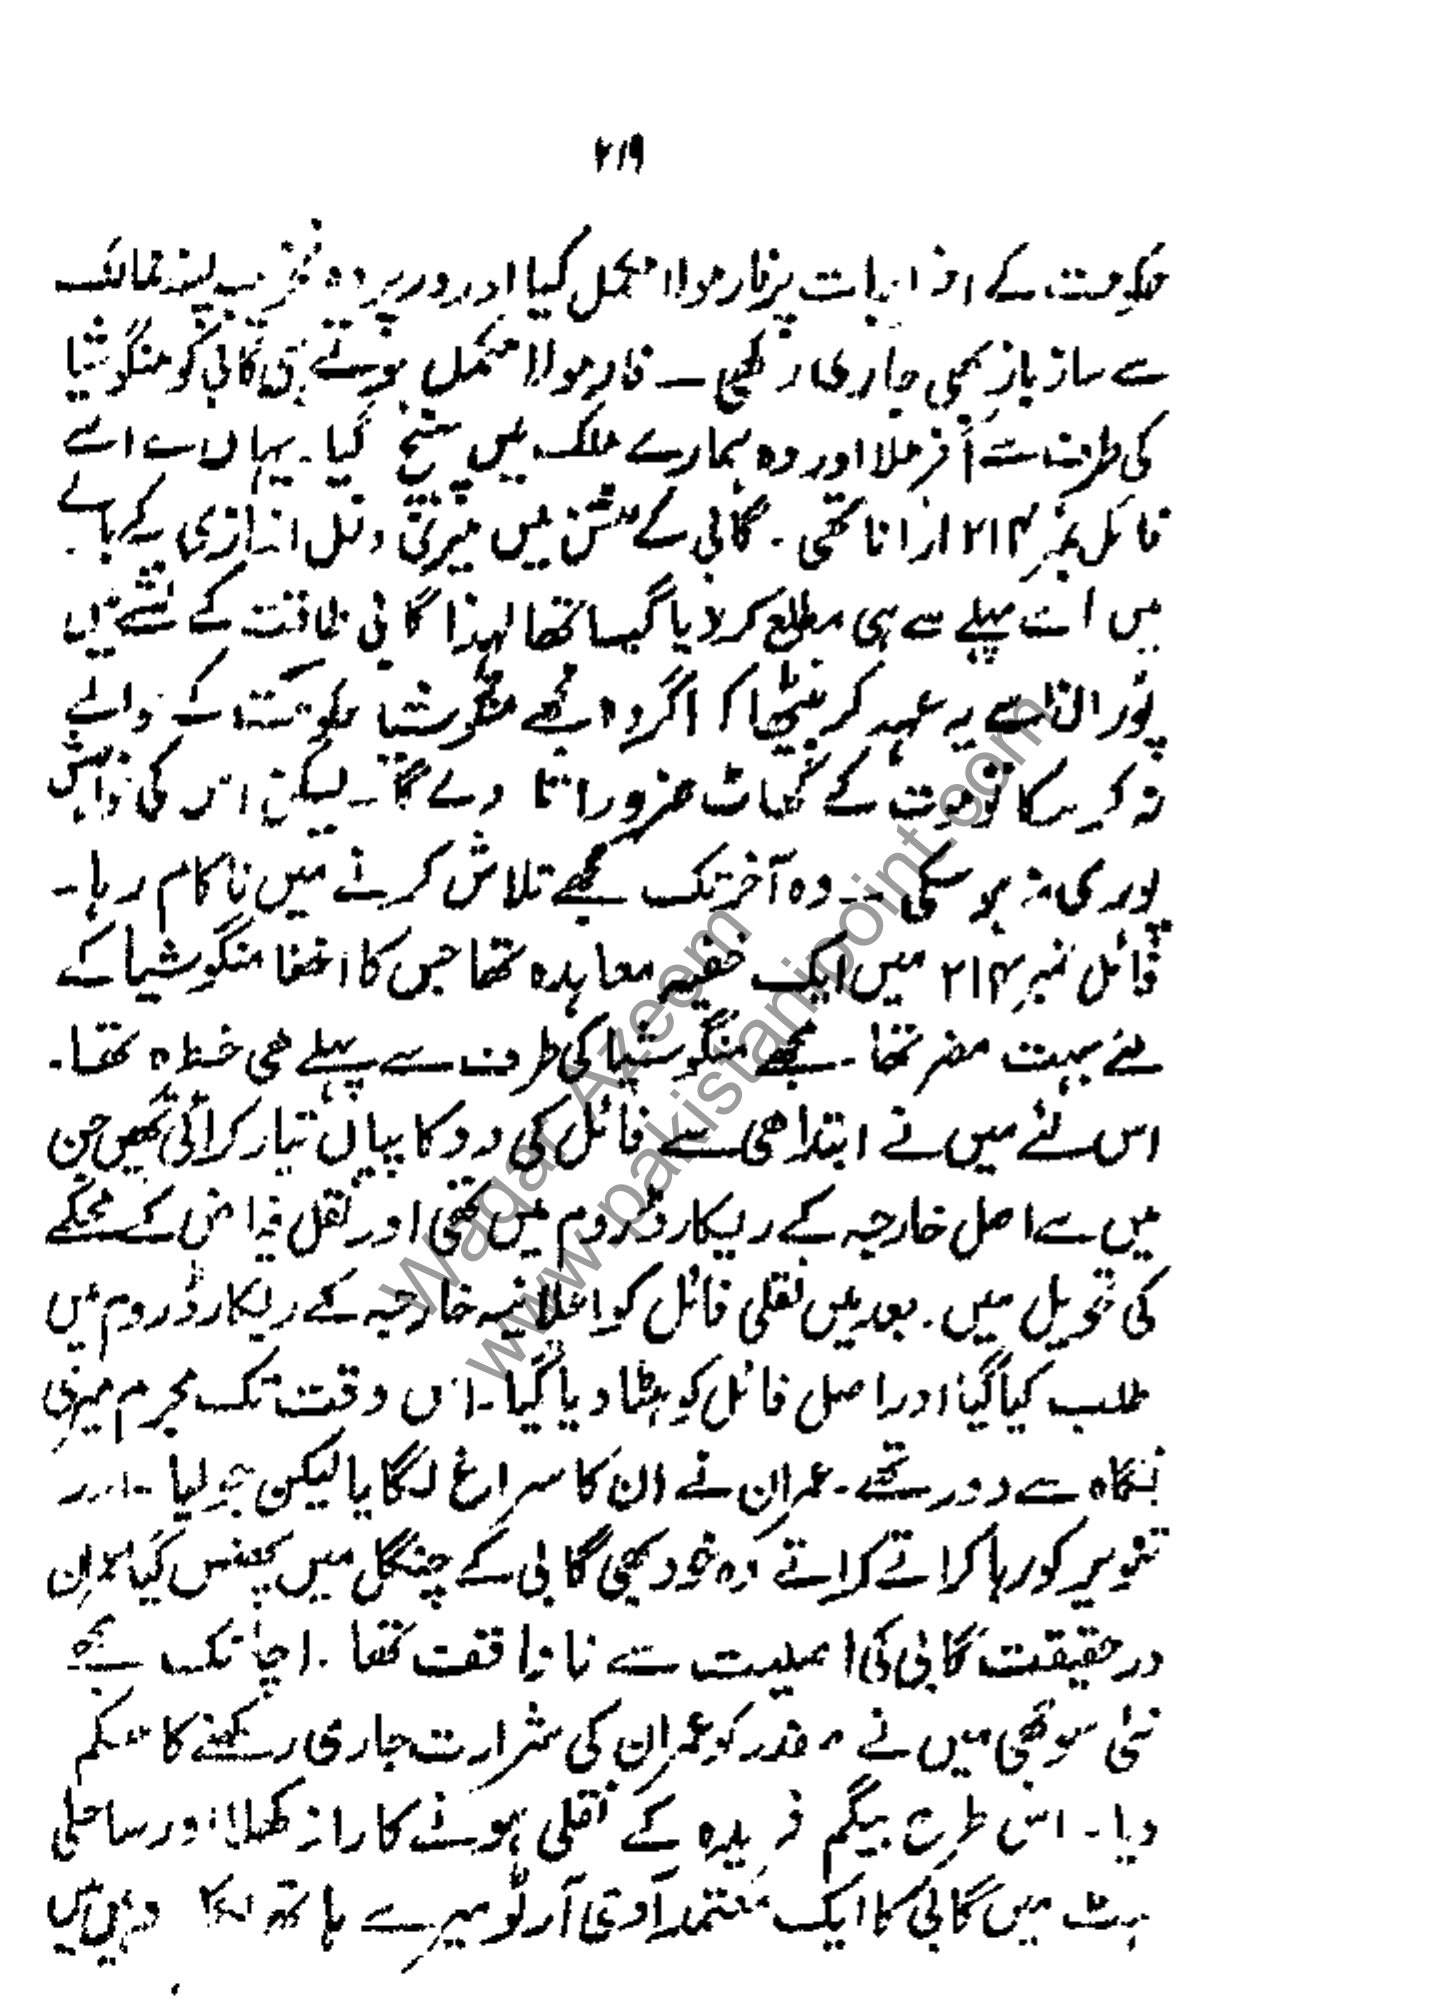 ۲۱۹
حکومت کے اخراجات پر فارمولا مکمل کیا اور در پردہ تخریب پسند ممالک
سے ساز باز بھی جاری رکھی ۔ فارمولا مکمل ہوتے ہی گابی کو منگوشیا
کی طرف سے آفر ملا اور وہ ہمارے ملک میں پہنچ گیا ۔ یہاں سے اسے
فائل نمبر ۲۱۴ اڑانا تھی ۔ گابی کے مشن میں میری دخل اندازی کے بارے
میں اسے پہلے سے ہی مطلع کر دیا گیا تھا لہذا گابی طاقت کے نشے میں
یہ عہد کر بیٹھا کہ اگر وہ مجھے منگوشیا حکومت کے حوالے
نہ کر سکا تو موت کے گھاٹ ضرور اتار دے گا ۔ لیکن اس کی خواہش
پوری نہ ہو سکی ۔۔ وہ آخر تک مجھے تلاش کرنے میں ناکام رہا ۔
فائل نمبر ۲۱۴ میں ایک خفیہ معاہدہ تھا جس کا اخفا منگوشیا کے
لئے بہت مضر تھا ۔ مجھے منگوشیا کی طرف سے پہلے ھی خطرہ تھا ۔
اس لئے میں نے ابتدا ھی سے فائل کی دو کاپیاں تیار کرائی تھیں جن
میں سے اصل خارجہ کے ریکارڈ روم میں تھی اور نقل کے محکمے
کی تحویل میں ۔ بعد میں نقلی فائل کو اعلانیہ خارجہ کے ریکارڈ روم میں
طلب کیا گیا اور اصل فائل کو ہٹا دیا گیا ۔ اس وقت تک مجرم میری
نگاہ سے دور تھے ۔ عمران نے ان کا سراغ لگایا لیکن جولیا ۔ اور
تنویر کو رہا کراتے کراتے وہ خود بھی گابی کے چنگل میں پھنس گیا عمران
در حقیقت گابی کی اصلیت سے ناواقف تھا ۔ اچانک مجھے
نئی سوجھی میں نے صفدر کو عمران کی شرارت جاری رکھنے کا حکم
دیا ۔ اس طرح بیگم فریدہ کے نقلی ہونے کا راز کھلا اور ساحلی
ہٹ میں گابی کا ایک معتمد آدمی آرٹو میرے ہاتھ لگا وہیں میں
Waqar Azeem
www.pakistanipoint.com